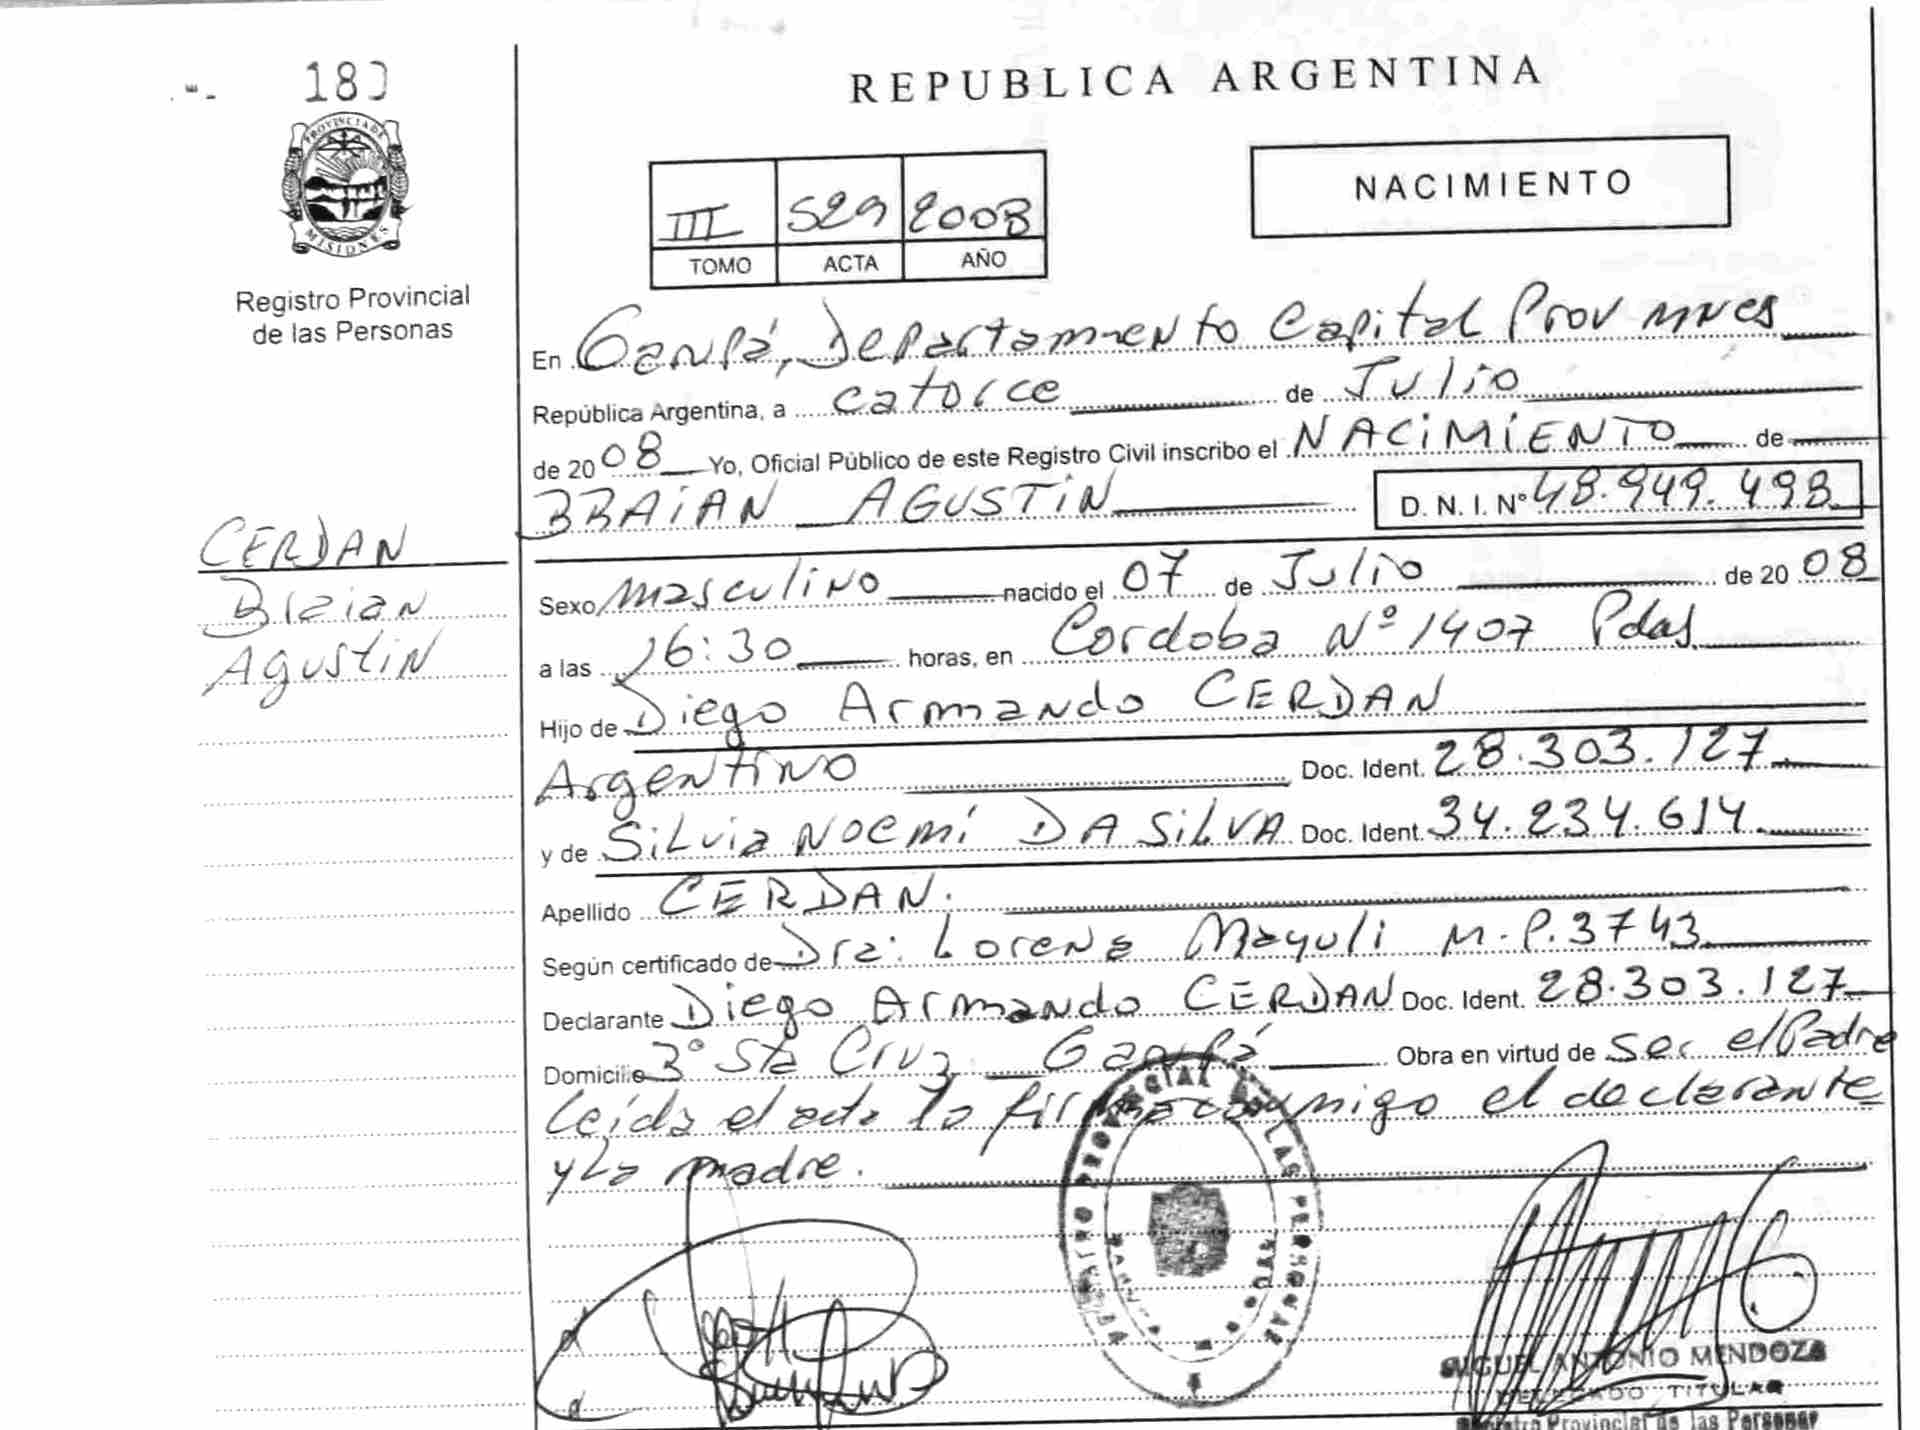 180
PROVINCIA DE
MISIONES
Registro Provincial
de las Personas
CERDAN
Braian
Agustin
REPUBLICA ARGENTINA
NACIMIENTO
III 529 2008
TOMO ACTA AÑO
En Garupá, Departamento Capital Prov Mnes
República Argentina, a catorce de Julio
de 2008 Yo, Oficial Público de este Registro Civil inscribo el NACIMIENTO de
BRAIAN AGUSTIN D. N. I. Nº 48.949.498
Sexo masculino nacido el 07 de Julio de 2008
a las 16:30 horas, en Cordoba Nº 1407 Pdas
Hijo de Diego Armando CERDAN
Argentino Doc. Ident. 28.303.127
y de Silvia Noemí DA SILVA Doc. Ident. 34.234.614
Apellido CERDAN.
Según certificado de Dra: Lorena Mayuli M.P. 3743
Declarante Diego Armando CERDAN Doc. Ident. 28.303.127
Domicilio 3º Sta Cruz Garupá Obra en virtud de ser el Padre
Leída el acta la firma conmigo el declarante
y La madre.
REGISTRO PROVINCIAL DE LAS PERSONAS
MIGUEL ANTONIO MENDOZA
DELEGADO TITULAR
Registro Provincial de las Personas